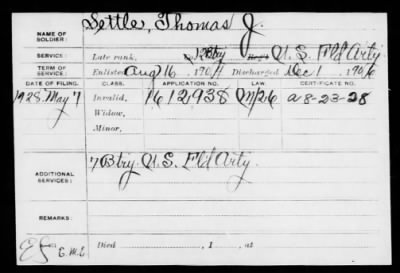 NAME OF SOLDIER: Settle, Thomas J.
SERVICE: Late rank, Co. Btry Reg't U. S. Fld Arty
TERM OF SERVICE: Enlisted Aug 16, 1904 Discharged Dec 1, 1906
DATE OF FILING. CLASS. APPLICATION NO. LAW. CERTIFICATE NO.
1928 May 7 Invalid, 1612938
Widow,
Minor,
ADDITIONAL SERVICES: 7 Btry. U. S. Fld Arty.
REMARKS:
Died , 1 , at